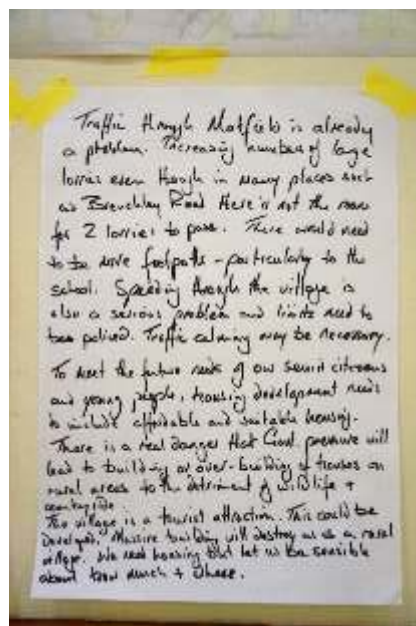 Traffic through Matfield is already
a problem. Increasing numbers of large
lorries even though in many places such
as Brenchley Road there is not the room
for 2 lorries to pass. There would need
to be more footpaths - particularly to the
school. Speeding through the village is
also a serious problem and limits need to
be policed. Traffic calming may be necessary.
To meet the future needs of our senior citizens
and young people, housing development needs
to include affordable and suitable housing.
There is a real danger that Govt pressure will
lead to building or over-building of houses on
rural areas to the detriment of wildlife +
countryside
The village is a tourist attraction. This could be
developed. Massive building will destroy us as a rural
village. We need housing but let us be sensible
about how much + where.